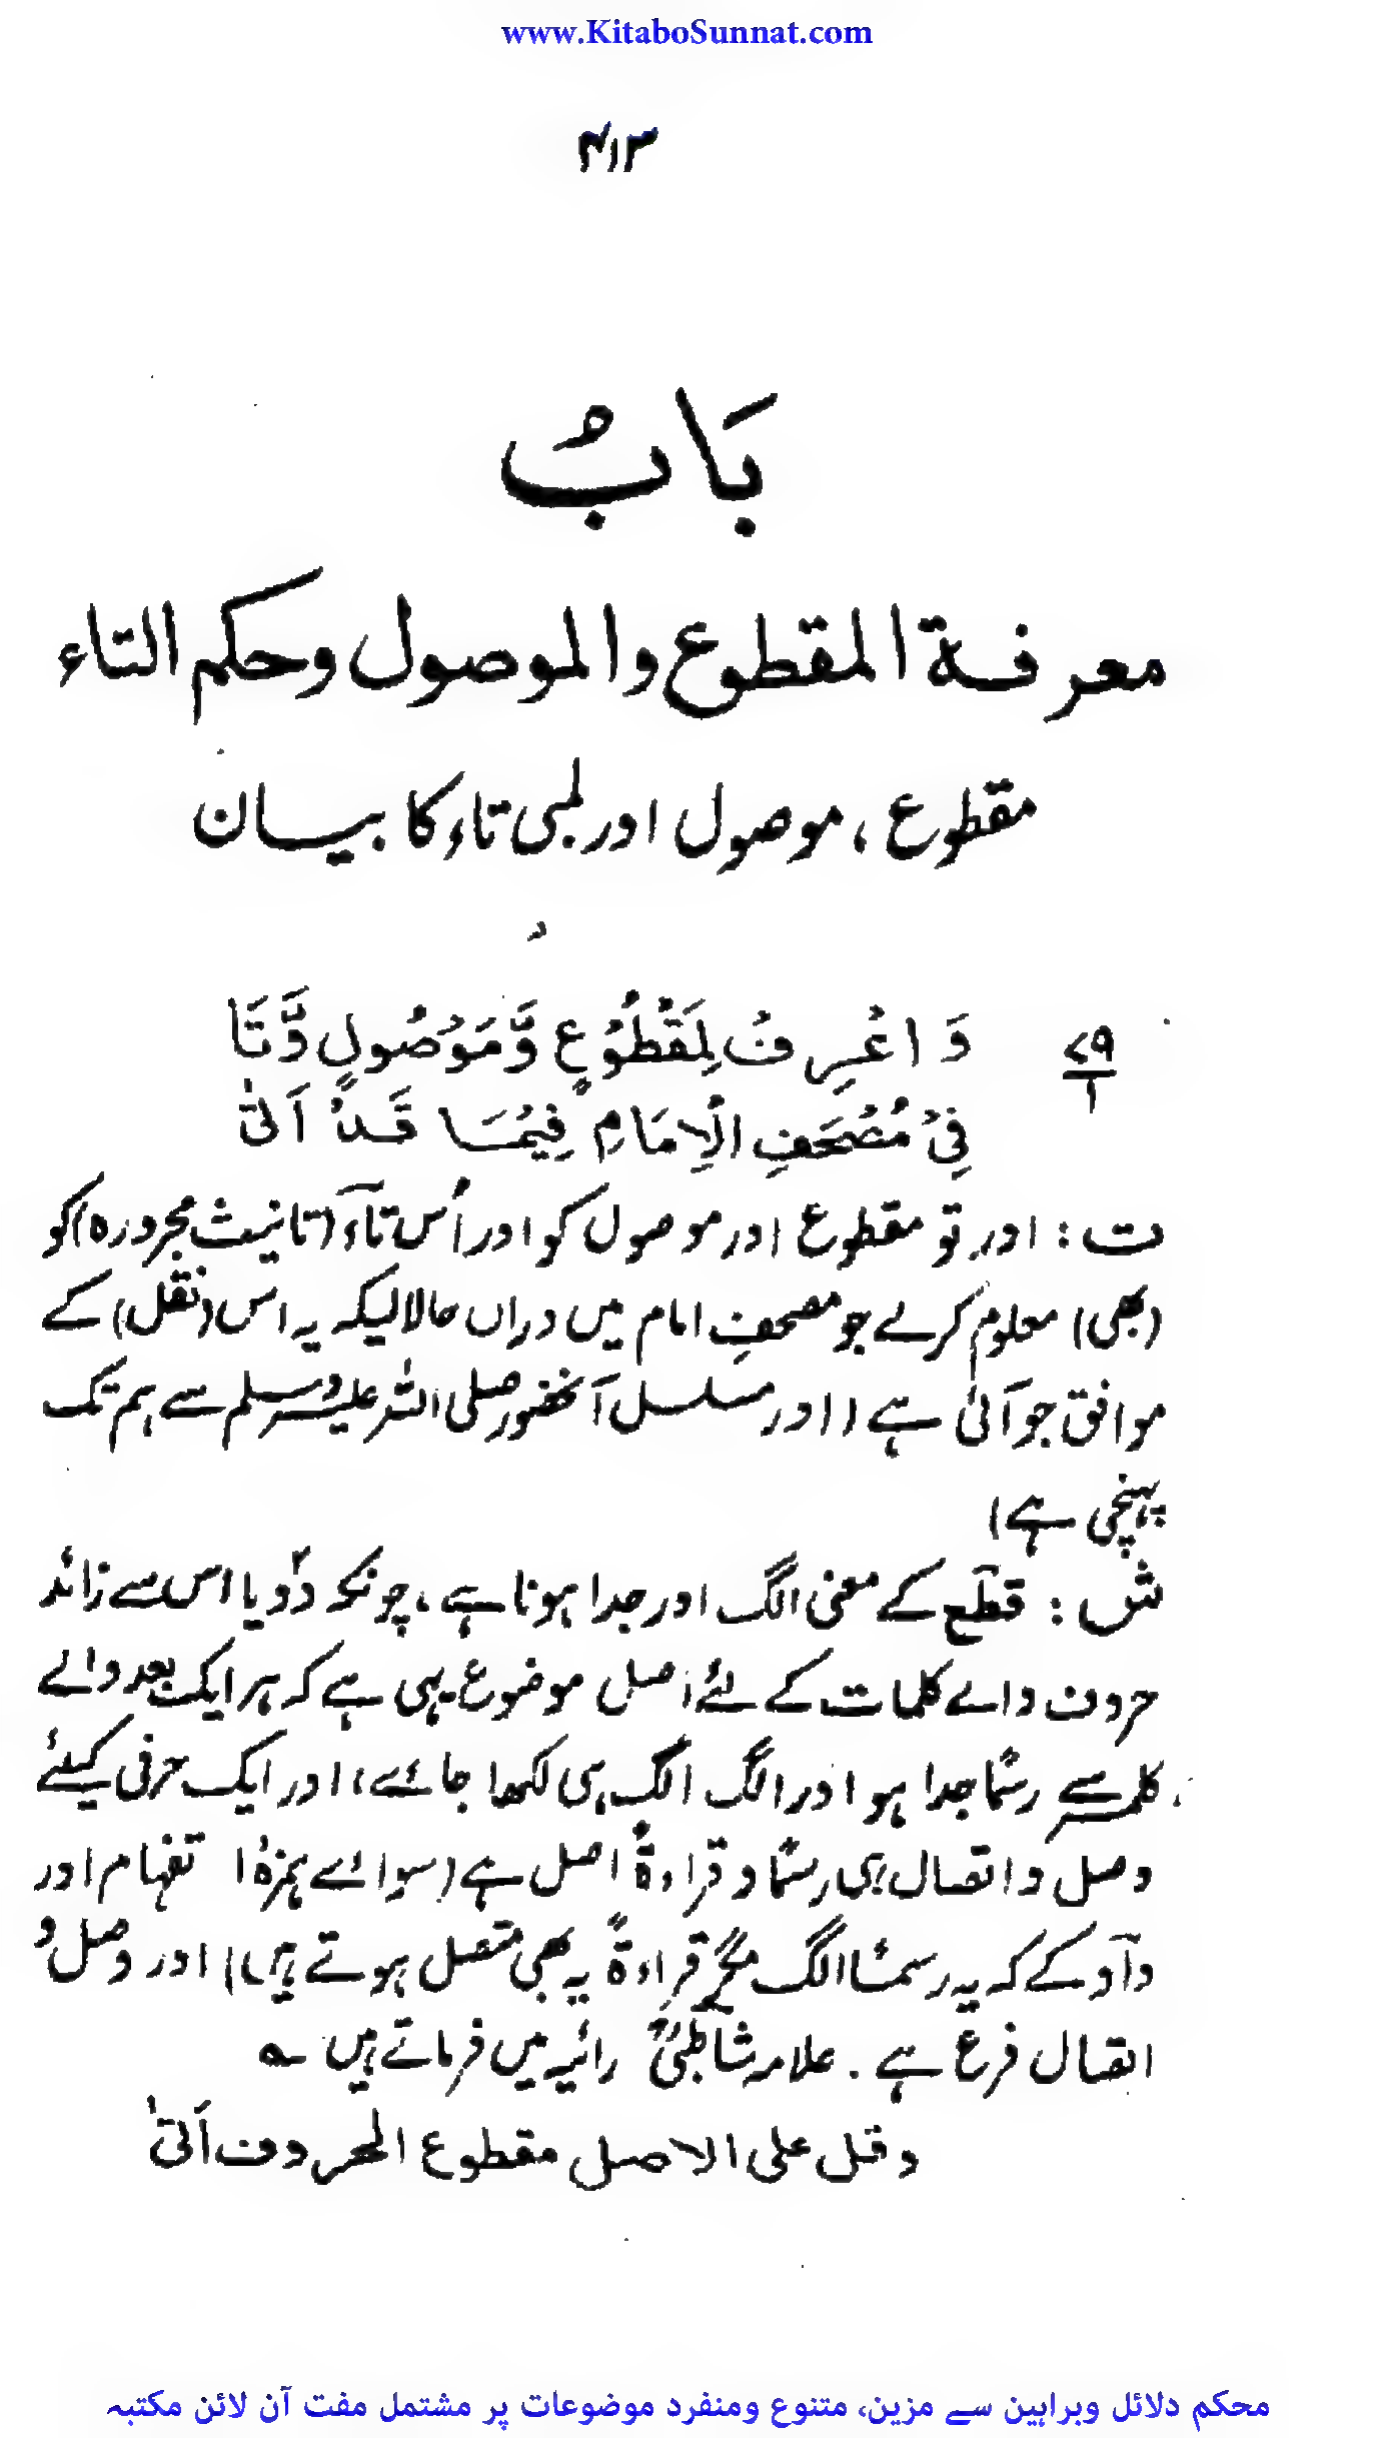 www.KitaboSunnat.com
۴۱۳
بَابُ
معرفة المقطوع والموصول وحکم التاء
مقطوع ، موصول اور لمبی تاء کا بیان
۷۹
۱
وَ اعْرِفْ لِمَقْطُوْعٍ وَّمَوْصُوْلٍ وَّتَا
فِيْ مُصْحَفِ الْاِمَامِ فِيْمَا قَدْ اَتٰی
ت : اور تو مقطوع اور موصول کو اور اُس تآء (تانیث مجرورہ) کو
(بھی) معلوم کرلے جو مصحفِ امام میں دراں حالالیکہ یہ اس (نقل) کے
موافق جو آئی ہے (اور مسلسل آنحضور صلی اللہ علیہ وسلم سے ہم تک
پہنچی ہے)
ش : قطع کے معنی الگ اور جدا ہونا ہے ، چونکہ دو یا اس سے زائد
حروف والے کلمات کے لئے اصل موضوع یہی ہے کہ ہر ایک بعد والے
کلمہ سے رسمًا جدا ہو اور الگ الگ ہی لکھا جائے ، اور ایک حرفی کیلئے
وصل و اتصال ہی رسمًا و قراءۃً اصل ہے (سوائے ہمزۂ ا تفہام اور
وآو کے کہ یہ رسمًا الگ مگر قراءۃً یہ بھی متصل ہوتے ہیں) اور وصل و
اتصال فرع ہے . علامہ شاطبیؒ رائیہ میں فرماتے ہیں ؎
وقل علی الاصل مقطوع الحروف اَتٰی
محکم دلائل وبراہین سے مزین، متنوع ومنفرد موضوعات پر مشتمل مفت آن لائن مکتبہ